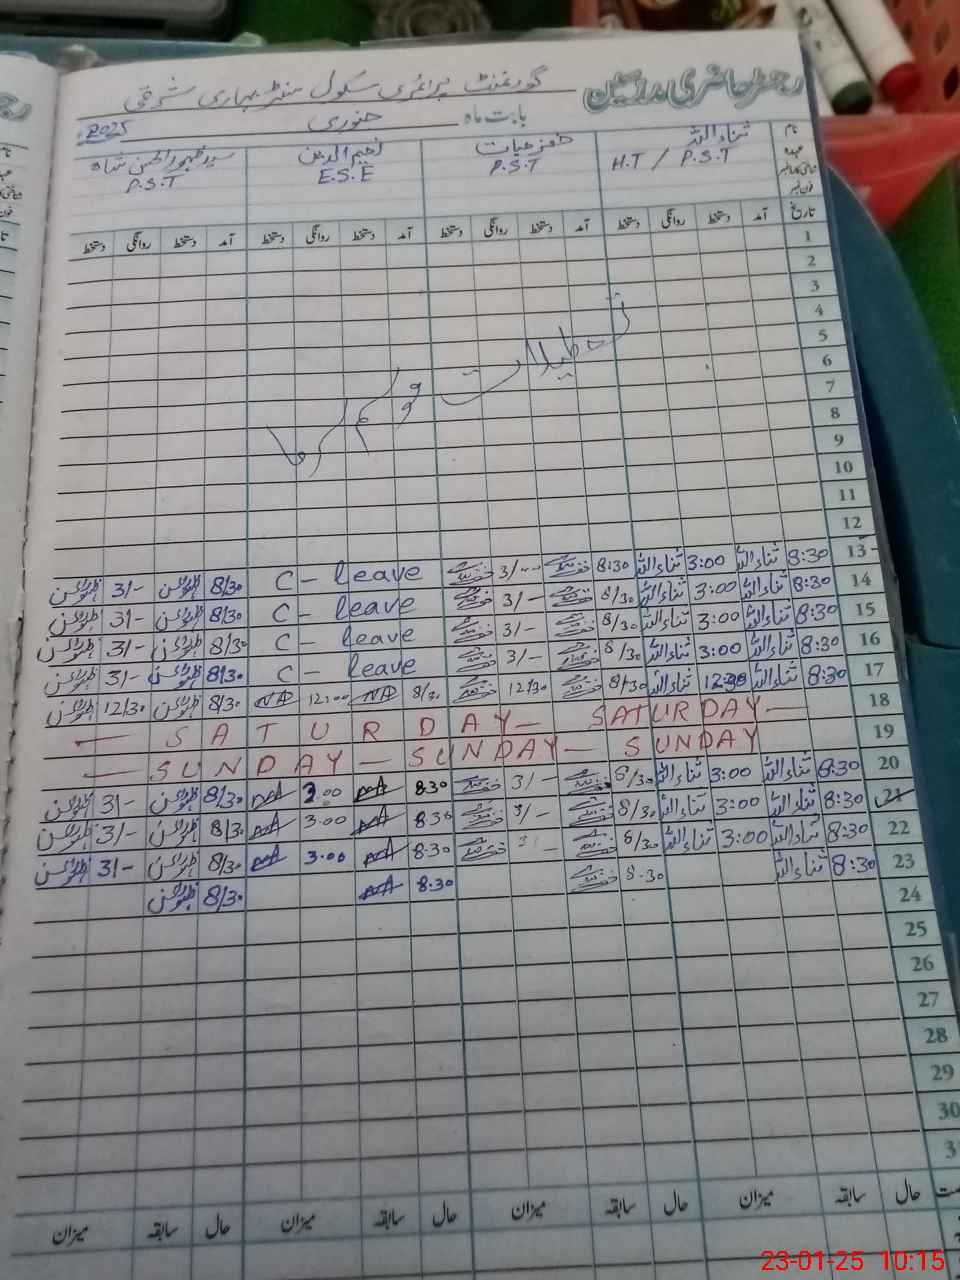 رجسٹر حاضری مدرسین
گورنمنٹ پرائمری سکول سنٹر بہاری شرقی
بابت ماہ جنوری 2025
نام ثناء اللہ خضر حیات نعیم الدین سید ظہور الحسن شاہ
عہدہ H.T / P.S.T P.S.T E.S.E P.S.T
شناختی کارڈ نمبر
فون نمبر
تاریخ آمد دستخط روانگی دستخط آمد دستخط روانگی دستخط آمد دستخط روانگی دستخط آمد دستخط روانگی دستخط
1
2
3
4
5
6
7
8
9
10
11
12
تعطیلات موسم سرما
13 8:30 ثناء اللہ 3:00 ثناء اللہ 8:30 3/- C - leave 8/30 3/-
14 8:30 ثناء اللہ 3:00 ثناء اللہ 8/30 3/- C - leave 8/30 3/-
15 8:30 ثناء اللہ 3:00 ثناء اللہ 8/30 3/- C - leave 8/30 3/-
16 8:30 ثناء اللہ 3:00 ثناء اللہ 8/30 3/- C - leave 8/30 3/-
17 8:30 ثناء اللہ 12:30 ثناء اللہ 8/30 12/30 8/30 12:00 8/30 12/30
18 — SATURDAY — SATURDAY —
19 — SUNDAY — SUNDAY — SUNDAY
20 8:30 ثناء اللہ 3:00 ثناء اللہ 8/30 3/- 8:30 3:00 8/30 3/-
21 8:30 ثناء اللہ 3:00 ثناء اللہ 8/30 3/- 8:30 3:00 8/30 3/-
22 8:30 ثناء اللہ 3:00 ثناء اللہ 8/30 8:30 3:00 8/30 3/-
23 8:30 ثناء اللہ 8:30 8:30 8/30
24
25
26
27
28
29
30
31
حال سابقہ میزان حال سابقہ میزان حال سابقہ میزان حال سابقہ میزان
23-01-25 10:15